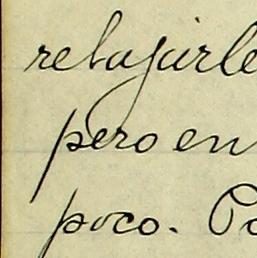 relajarle
pero en
poco. Po